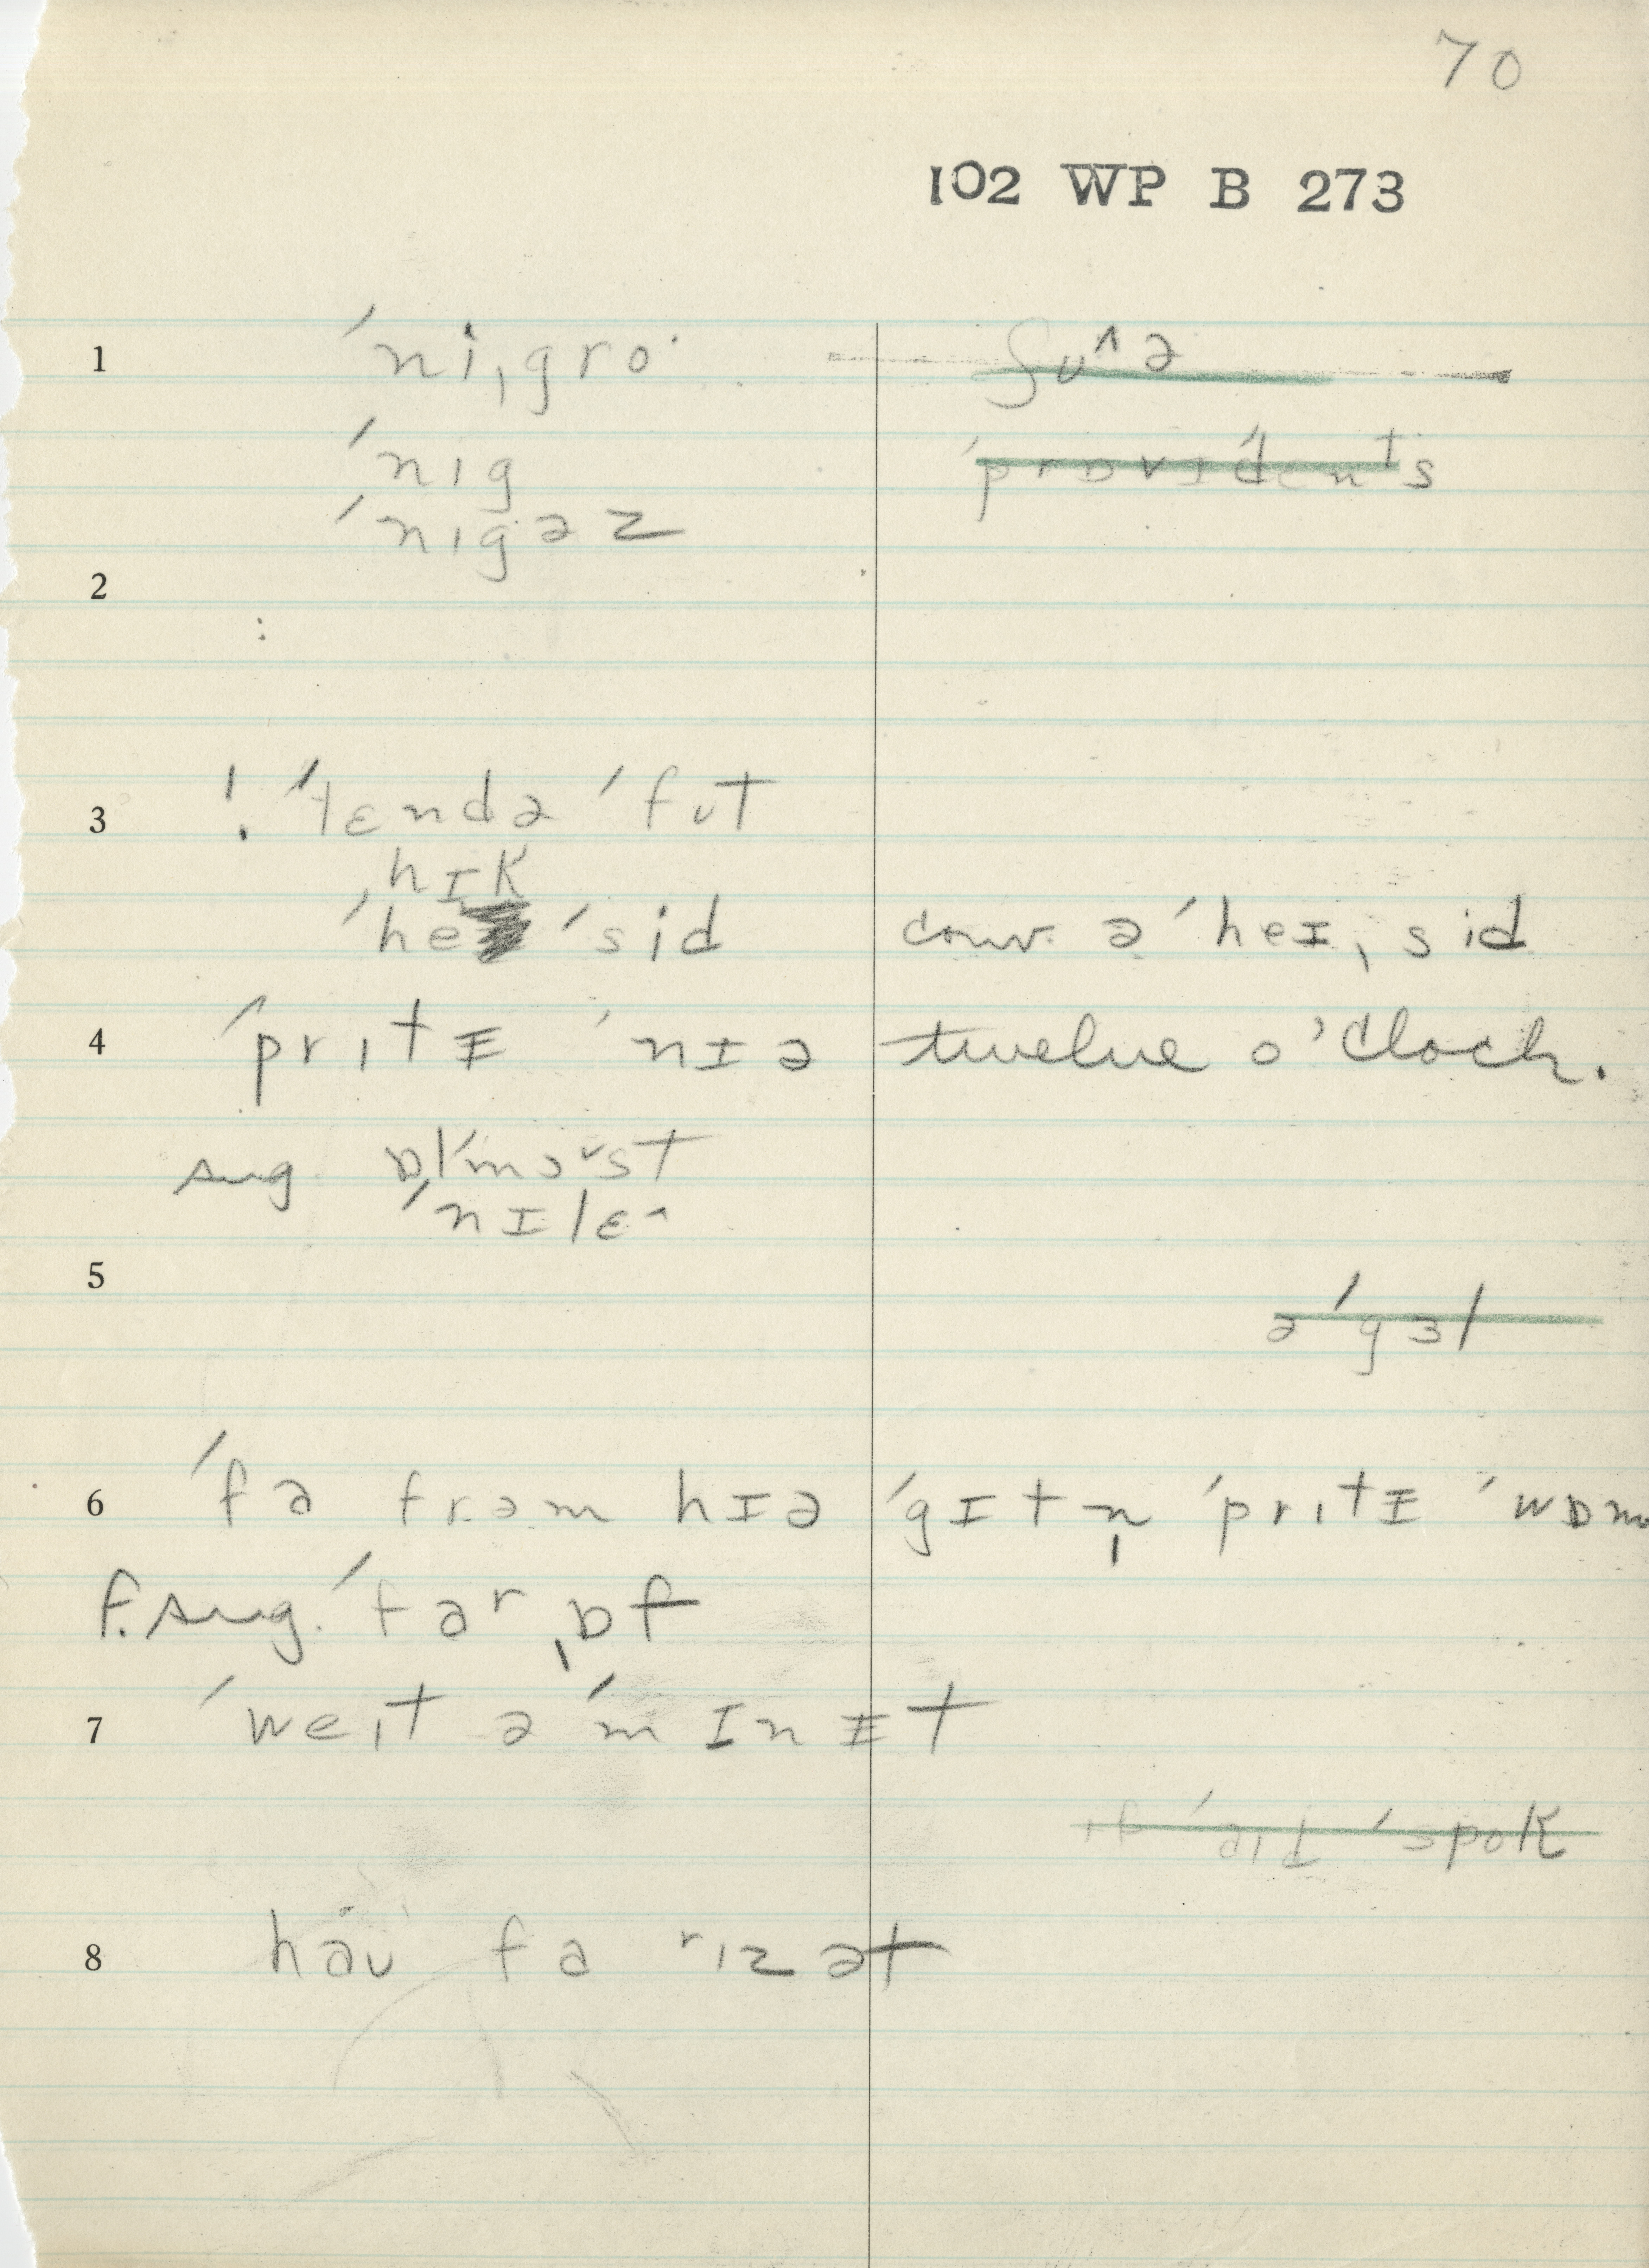 70
102 WP B 273
1 ˈniˌgroˑ ʃuᶺə
ˈnɪg ˈprɒvɪˈdɛnᵗs
ˈnɪgəz
2
:
3 ! ˈtɛndə ˈfut
ˌhɪk
ˈhe ˈsid conv. ə ˈheɪˌsid
4 ˈprɪtɪ ˈnɪə twelve o'clock.
sug. ɒlˈmoᵘst
ˈnɪlɛ
5
əˈgɜl
6 ˈfa frəm hɪə ˈgɪtn̩ ˈprɪtɪ ˈwɒm
f. sug. ˈfaʳˌɒf
7 ˈweɪt ə ˈmɪnɪt
ɪf ˈaɪd ˈspok
8 haᴜ fa rɪz ət